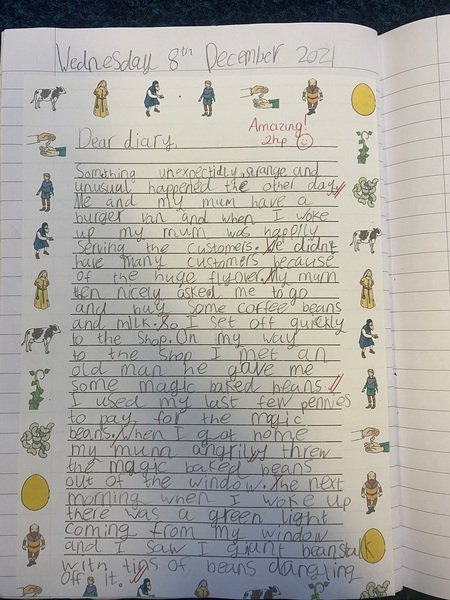 Wednesday 8th December 2021
Amazing!
2hp
Dear diary,
Something unexpectidly, strange and
unusual happened the other day
Me and my mum have a
burger van and when I woke
up my mum was happily
serving the customers. We didn't
have many customers because
of the huge flyover. My mum
then nicely asked me to go
and buy some coffee beans
and milk. So I set off quickly
to the shop. On my way
to the shop I met an
old man he gave me
some magic baked beans.
I used my last few pennies
to pay for the magic
beans. When I got home
my mum angrily threw
the magic baked beans
out of the window. The next
morning when I woke up
there was a green light
coming from my window
and I saw I giant beanstalk
with tins of beans dangling
off it.